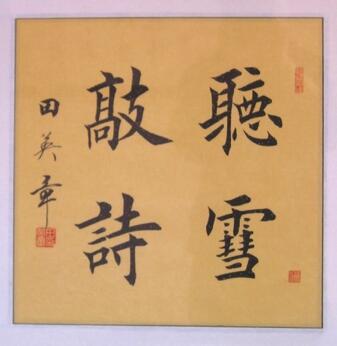 聽雪
敲詩
田英章